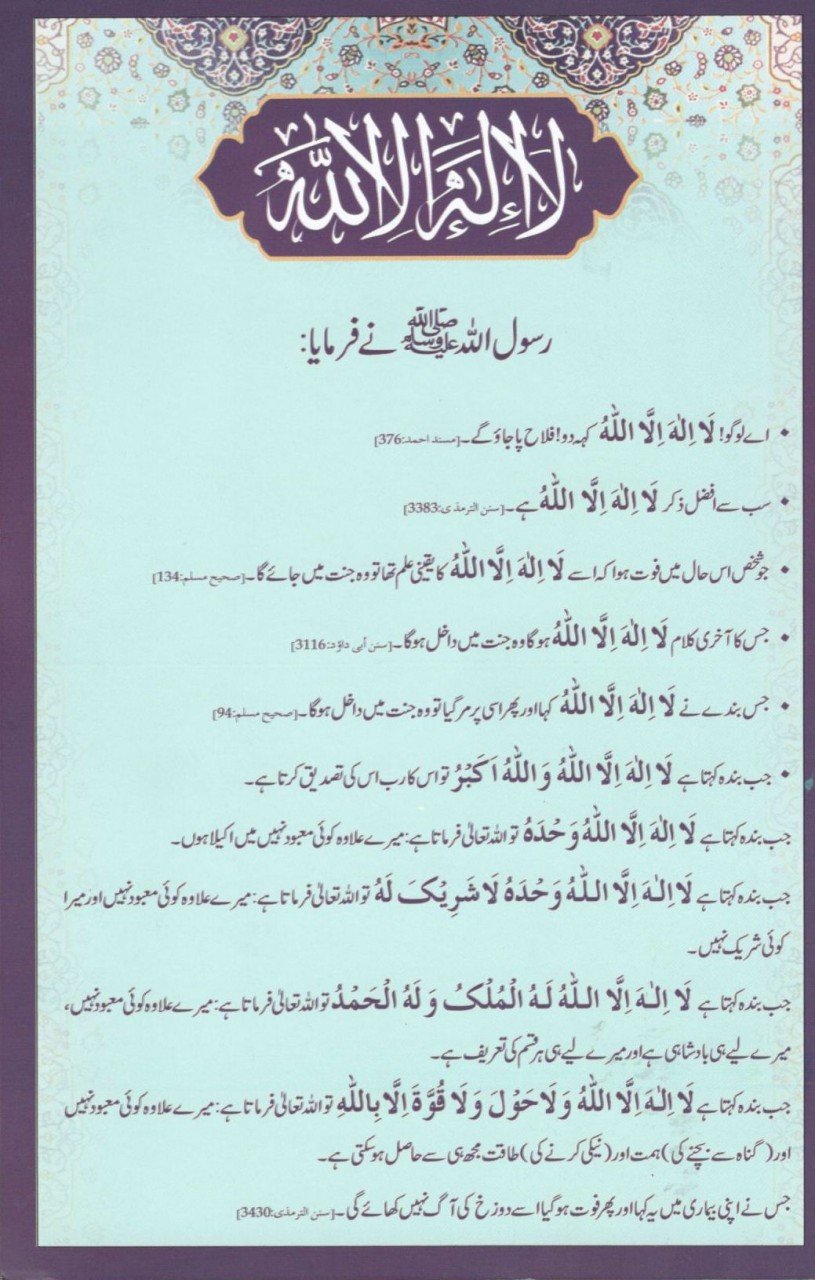 لَا إِلٰهَ إِلَّا اللّٰه
رسول اللہ ﷺ نے فرمایا:
• اے لوگو! لَا اِلٰهَ اِلَّا اللّٰهُ کہہ دو! فلاح پا جاؤ گے۔ [مسند احمد:376]
• سب سے افضل ذکر لَا اِلٰهَ اِلَّا اللّٰهُ ہے۔ [سنن الترمذی:3383]
• جو شخص اس حال میں فوت ہوا کہ اسے لَا اِلٰهَ اِلَّا اللّٰهُ کا یقینی علم تھا تو وہ جنت میں جائے گا۔ [صحیح مسلم:134]
• جس کا آخری کلام لَا اِلٰهَ اِلَّا اللّٰهُ ہوگا وہ جنت میں داخل ہوگا۔ [سنن أبی داؤد:3116]
• جس بندے نے لَا اِلٰهَ اِلَّا اللّٰهُ کہا اور پھر اسی پر مر گیا تو وہ جنت میں داخل ہوگا۔ [صحیح مسلم:94]
• جب بندہ کہتا ہے لَا اِلٰهَ اِلَّا اللّٰهُ وَاللّٰهُ اَكْبَرُ تو اس کا رب اس کی تصدیق کرتا ہے۔
جب بندہ کہتا ہے لَا اِلٰهَ اِلَّا اللّٰهُ وَحْدَهُ تو اللہ تعالیٰ فرماتا ہے: میرے علاوہ کوئی معبود نہیں میں اکیلا ہوں۔
جب بندہ کہتا ہے لَا اِلٰهَ اِلَّا اللّٰهُ وَحْدَهُ لَا شَرِيْكَ لَهُ تو اللہ تعالیٰ فرماتا ہے: میرے علاوہ کوئی معبود نہیں اور میرا
کوئی شریک نہیں۔
جب بندہ کہتا ہے لَا اِلٰهَ اِلَّا اللّٰهُ لَهُ الْمُلْكُ وَلَهُ الْحَمْدُ تو اللہ تعالیٰ فرماتا ہے: میرے علاوہ کوئی معبود نہیں،
میرے لیے ہی بادشاہی ہے اور میرے لیے ہی ہر قسم کی تعریف ہے۔
جب بندہ کہتا ہے لَا اِلٰهَ اِلَّا اللّٰهُ وَلَا حَوْلَ وَلَا قُوَّةَ اِلَّا بِاللّٰهِ تو اللہ تعالیٰ فرماتا ہے: میرے علاوہ کوئی معبود نہیں
اور (گناہ سے بچنے کی) ہمت اور (نیکی کرنے کی) طاقت مجھ ہی سے حاصل ہو سکتی ہے۔
جس نے اپنی بیماری میں یہ کہا اور پھر فوت ہوگیا اسے دوزخ کی آگ نہیں کھائے گی۔ [سنن الترمذی:3430]